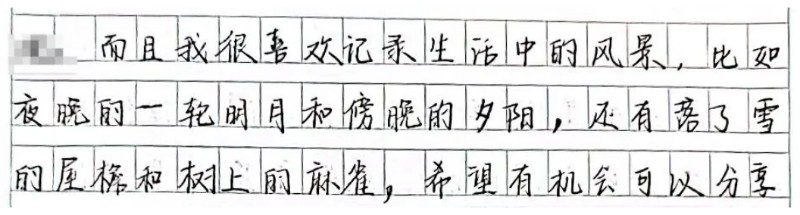 而且我很喜欢记录生活中的风景,比如
夜晚的一轮明月和傍晚的夕阳,还有落了雪
的屋檐和树上的麻雀,希望有机会可以分享